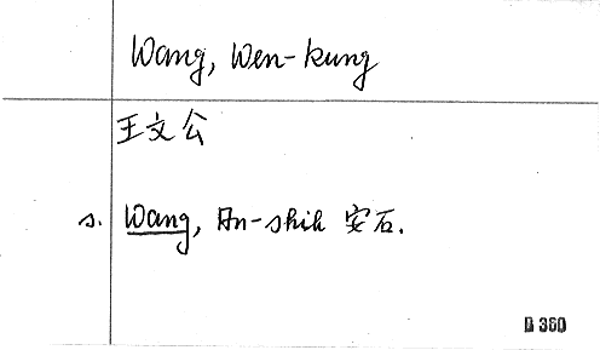 Wang, Wen-kung
王文公
s. Wang, An-shih 安石.
B 360